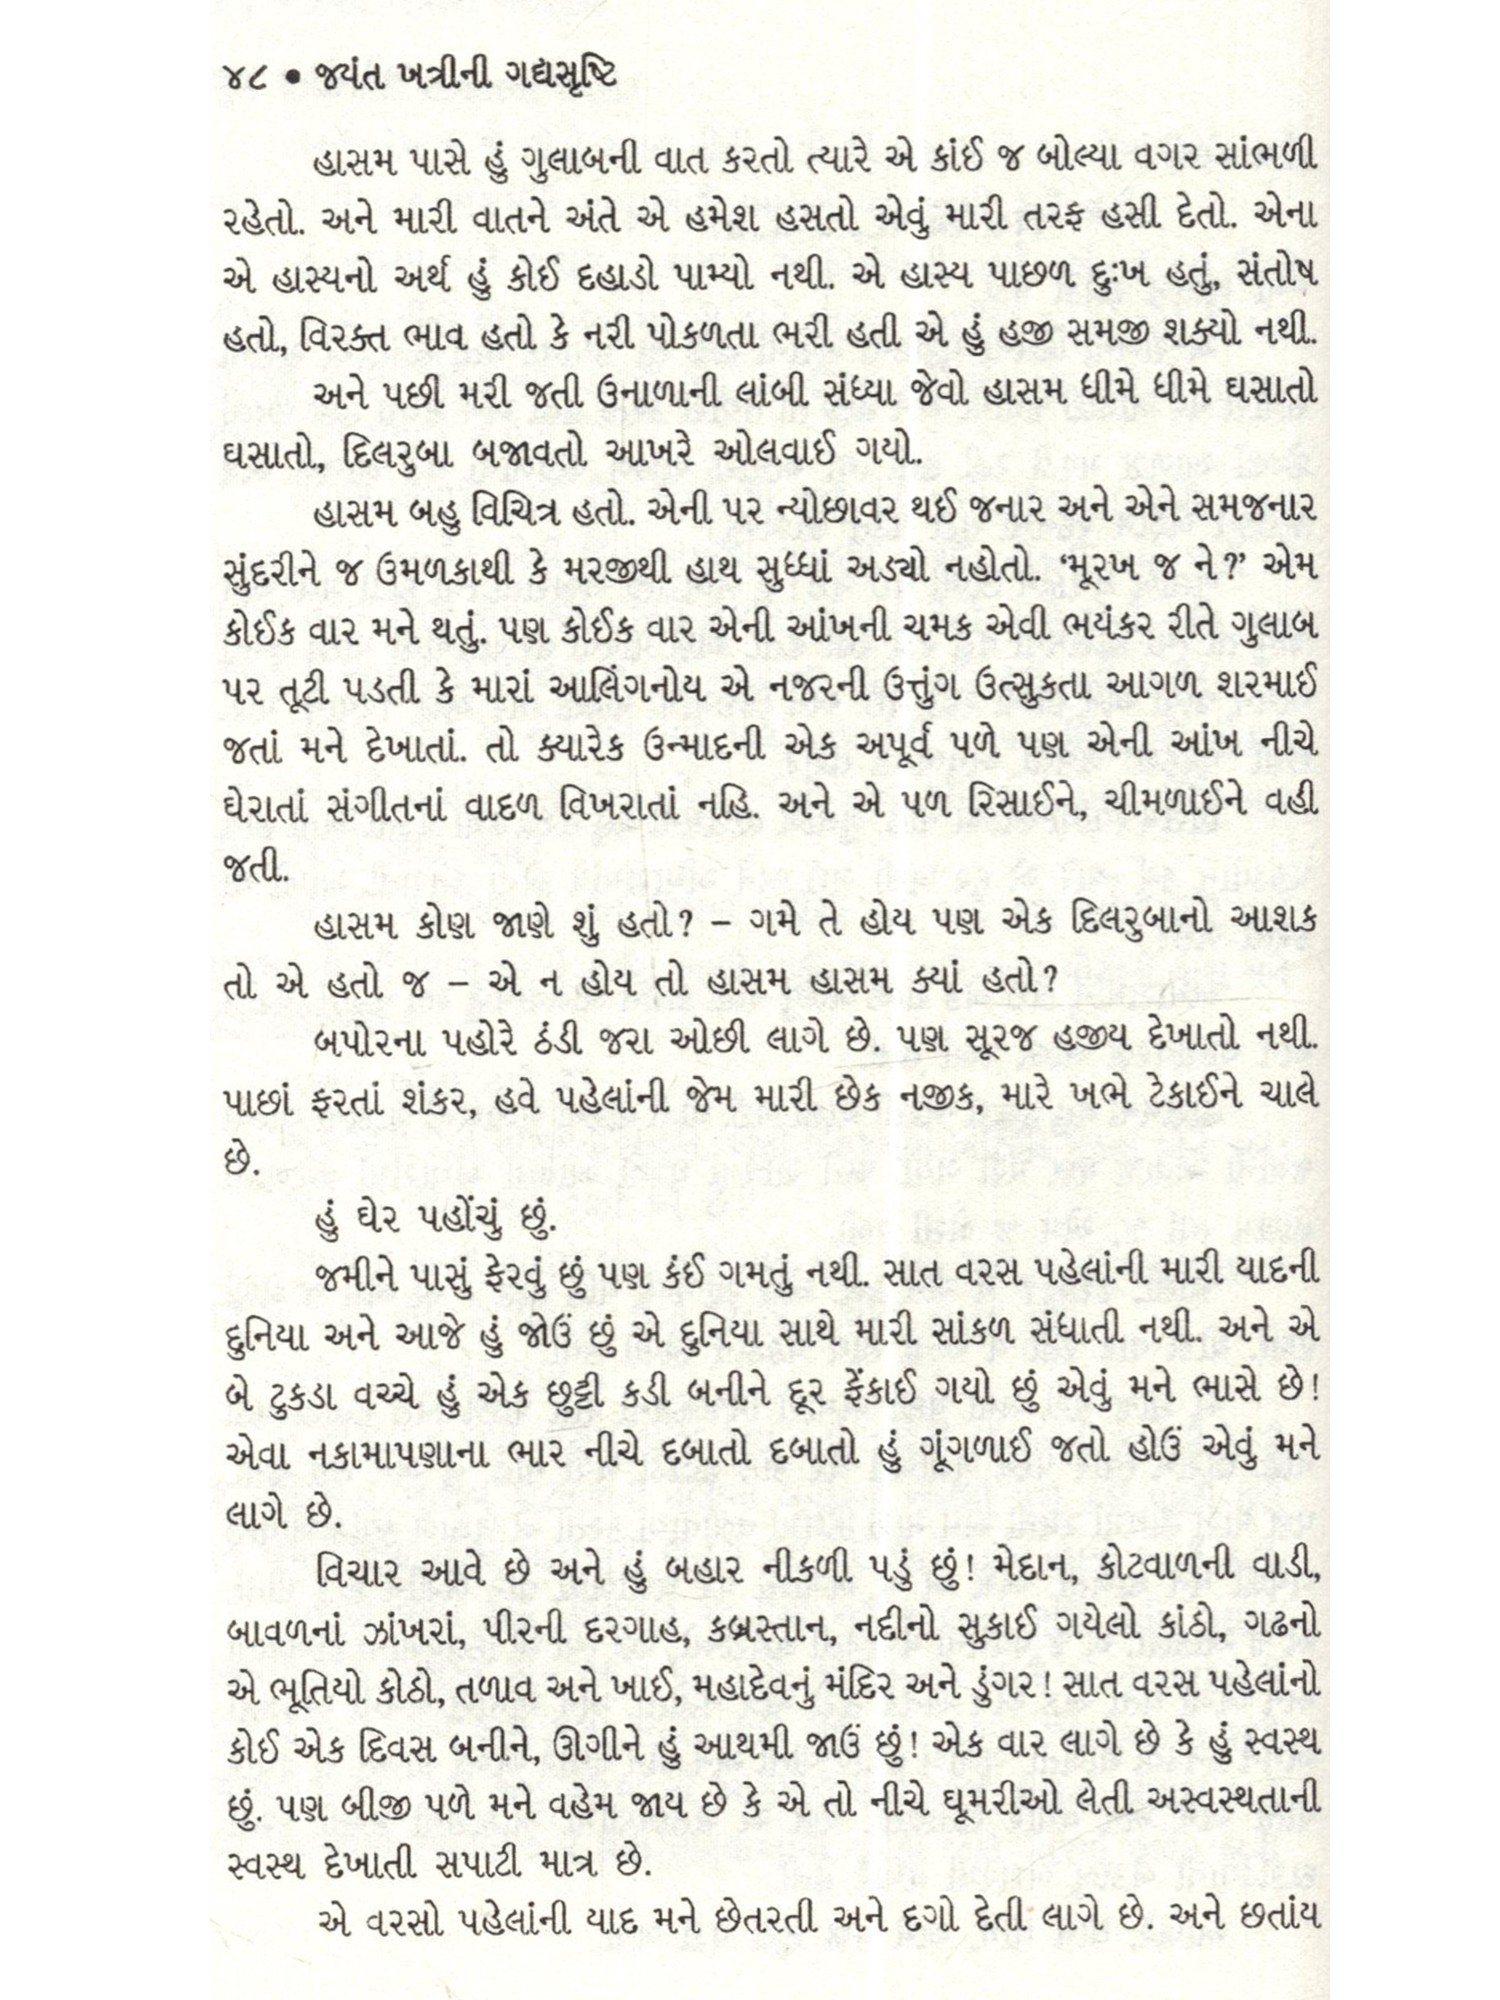 ૪૮ • જયંત ખત્રીની ગદ્યસૃષ્ટિ
હાસમ પાસે હું ગુલાબની વાત કરતો ત્યારે એ કાંઈ જ બોલ્યા વગર સાંભળી
રહેતો. અને મારી વાતને અંતે એ હમેશ હસતો એવું મારી તરફ હસી દેતો. એના
એ હાસ્યનો અર્થ હું કોઈ દહાડો પામ્યો નથી. એ હાસ્ય પાછળ દુઃખ હતું, સંતોષ
હતો, વિરક્ત ભાવ હતો કે નરી પોકળતા ભરી હતી એ હું હજી સમજી શક્યો નથી.
અને પછી મરી જતી ઉનાળાની લાંબી સંધ્યા જેવો હાસમ ધીમે ધીમે ઘસાતો
ઘસાતો, દિલરુબા બજાવતો આખરે ઓલવાઈ ગયો.
હાસમ બહુ વિચિત્ર હતો. એની પર ન્યોછાવર થઈ જનાર અને એને સમજનાર
સુંદરીને જ ઉમળકાથી કે મરજીથી હાથ સુધ્ધાં અડ્યો નહોતો. ‘મૂરખ જ ને?’ એમ
કોઈક વાર મને થતું. પણ કોઈક વાર એની આંખની ચમક એવી ભયંકર રીતે ગુલાબ
પર તૂટી પડતી કે મારાં આલિંગનોય એ નજરની ઉત્તુંગ ઉત્સુકતા આગળ શરમાઈ
જતાં મને દેખાતાં. તો ક્યારેક ઉન્માદની એક અપૂર્વ પળે પણ એની આંખ નીચે
ઘેરાતાં સંગીતનાં વાદળ વિખરાતાં નહિ. અને એ પળ રિસાઈને, ચીમળાઈને વહી
જતી.
હાસમ કોણ જાણે શું હતો? – ગમે તે હોય પણ એક દિલરુબાનો આશક
તો એ હતો જ – એ ન હોય તો હાસમ હાસમ ક્યાં હતો?
બપોરના પહોરે ઠંડી જરા ઓછી લાગે છે. પણ સૂરજ હજીય દેખાતો નથી.
પાછાં ફરતાં શંકર, હવે પહેલાંની જેમ મારી છેક નજીક, મારે ખભે ટેકાઈને ચાલે
છે.
હું ઘેર પહોંચું છું.
જમીને પાસું ફેરવું છું પણ કંઈ ગમતું નથી. સાત વરસ પહેલાંની મારી યાદની
દુનિયા અને આજે હું જોઉં છું એ દુનિયા સાથે મારી સાંકળ સંધાતી નથી. અને એ
બે ટુકડા વચ્ચે હું એક છુટ્ટી કડી બનીને દૂર ફેંકાઈ ગયો છું એવું મને ભાસે છે!
એવા નકામાપણાના ભાર નીચે દબાતો દબાતો હું ગૂંગળાઈ જતો હોઉં એવું મને
લાગે છે.
વિચાર આવે છે અને હું બહાર નીકળી પડું છું! મેદાન, કોટવાળની વાડી,
બાવળનાં ઝાંખરાં, પીરની દરગાહ, કબ્રસ્તાન, નદીનો સુકાઈ ગયેલો કાંઠો, ગઢનો
એ ભૂતિયો કોઠો, તળાવ અને ખાઈ, મહાદેવનું મંદિર અને ડુંગર! સાત વરસ પહેલાંનો
કોઈ એક દિવસ બનીને, ઊગીને હું આથમી જાઉં છું! એક વાર લાગે છે કે હું સ્વસ્થ
છું. પણ બીજી પળે મને વહેમ જાય છે કે એ તો નીચે ઘૂમરીઓ લેતી અસ્વસ્થતાની
સ્વસ્થ દેખાતી સપાટી માત્ર છે.
એ વરસો પહેલાંની યાદ મને છેતરતી અને દગો દેતી લાગે છે. અને છતાંય